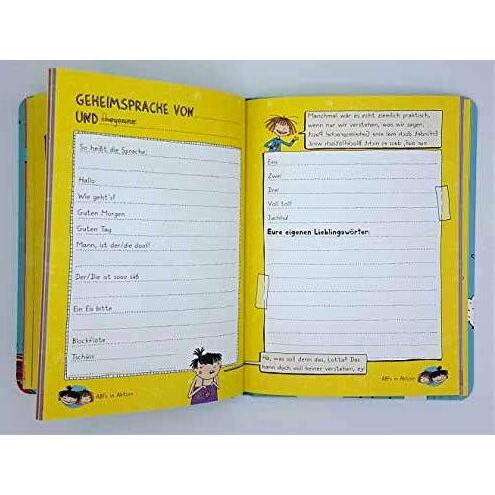 GEHEIMSPRACHE VON
UND
So heißt die Sprache:
Hallo
Wie geht's?
Guten Morgen
Guten Tag
Mann, ist der/die doof!
Der/Die ist sooo süß
Ein Eis bitte
Blockflöte
Tschüss
ABFs in Aktion
Manchmal wär es echt ziemlich praktisch,
wenn nur wir verstehen, was wir sagen,
Eins
Zwei
Drei
Voll toll!
Juchhu!
Eure eigenen Lieblingswörter:
Hä, was soll denn das, Lotta? Das
kann doch voll keiner verstehen, ey!
ABFs in Aktion